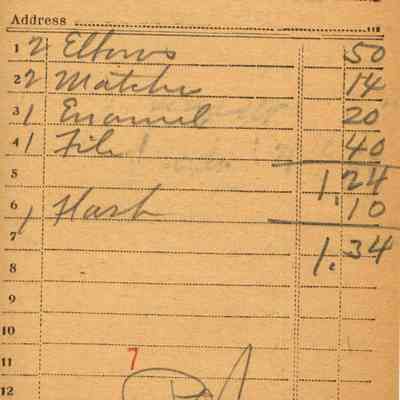 Address
1 2 Elbows 50
2 2 Matches 14
3 1 Enamel 20
4 1 File 40
5 1.24
6 1 Hasp .10
7 1.34
8
9
10
11 7
12 Pd